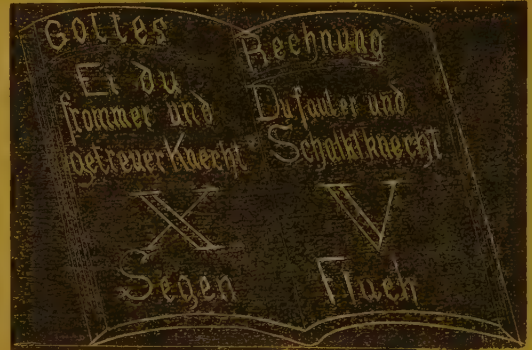 Gottes
Ei du
frommer und
getreuer Knecht
X
Segen
Rechnung
Du fauler und
Schalksknecht
V
Fluch